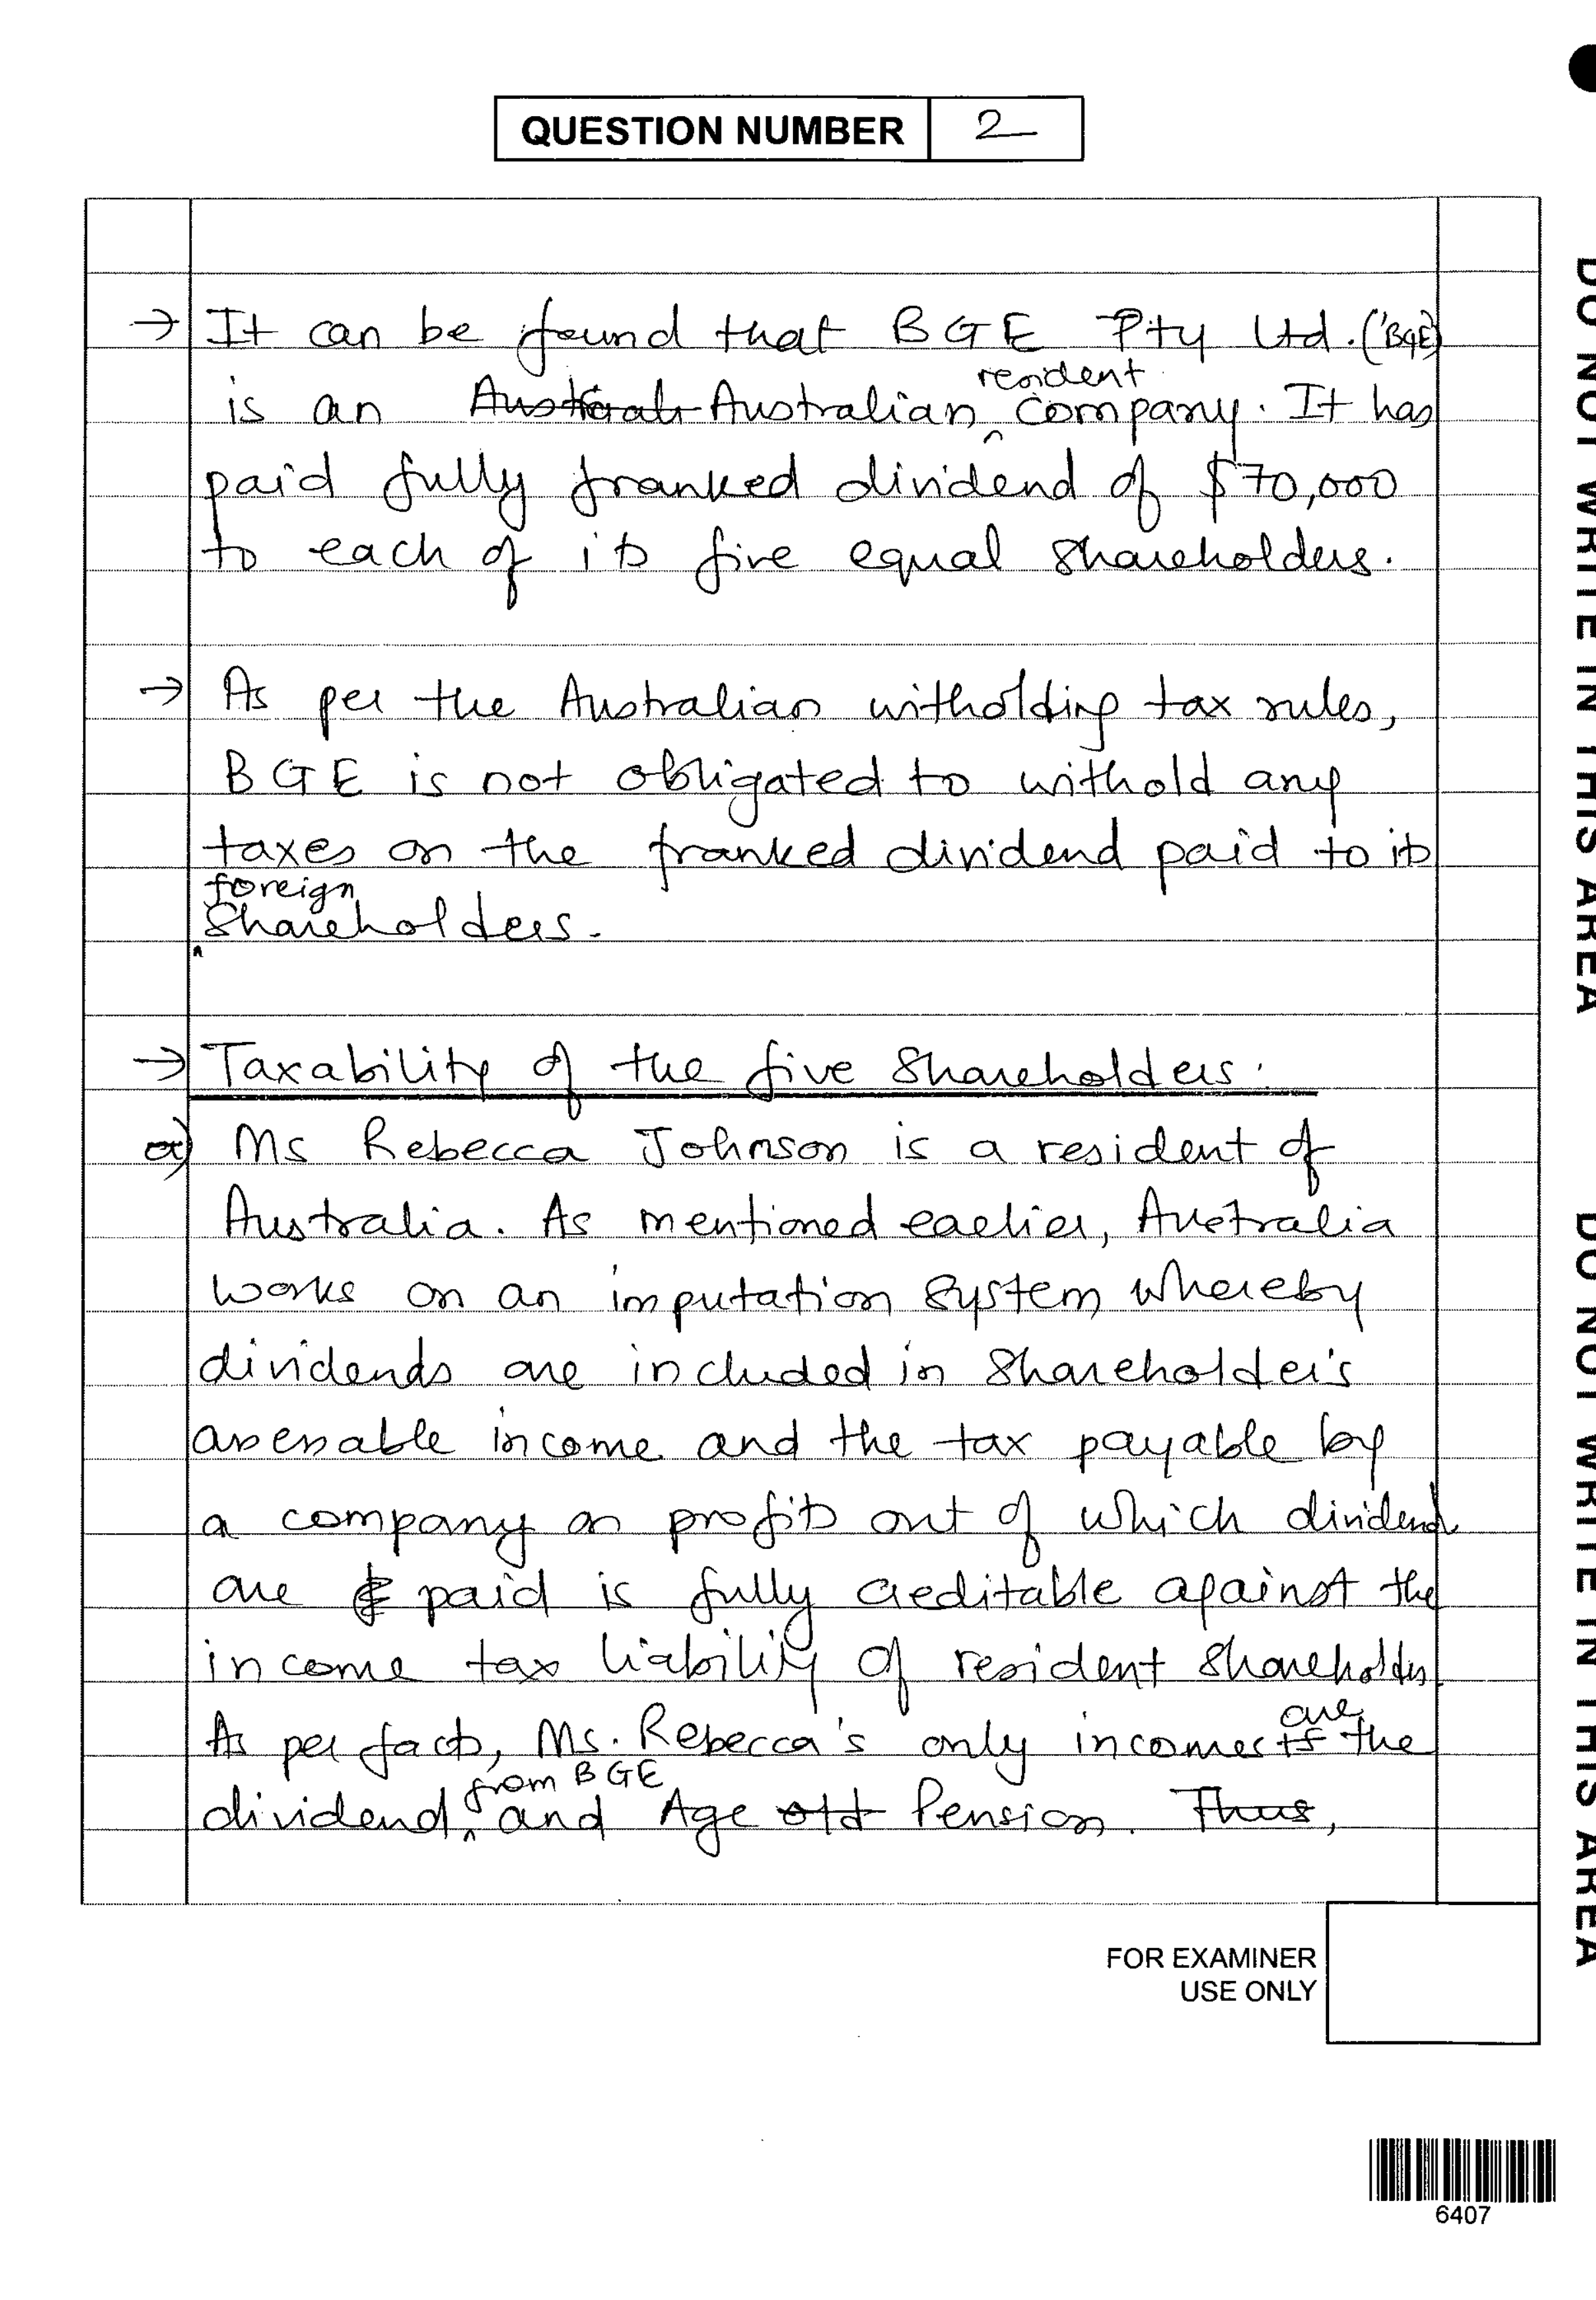 QUESTION NUMBER 2
→ It can be found that BGE Pty Ltd. ('BGE')
is an Australian resident company. It has
paid fully franked dividend of $70,000
to each of its five equal shareholders.
→ As per the Australian witholding tax rules,
BGE is not obligated to withold any
taxes on the franked dividend paid to its
foreign shareholders.
→ Taxability of the five shareholders.
a) Ms Rebecca Johnson is a resident of
Australia. As mentioned earlier, Australia
works on an imputation system whereby
dividends are included in shareholder's
assessable income and the tax payable by
a company on profits out of which dividend
are paid is fully creditable against the
income tax liability of resident shareholders.
As per facts, Ms. Rebecca's only incomes are the
dividend from BGE and Age Pension. Thus,
FOR EXAMINER
USE ONLY
6407
DO NOT WRITE IN THIS AREA
DO NOT WRITE IN THIS AREA